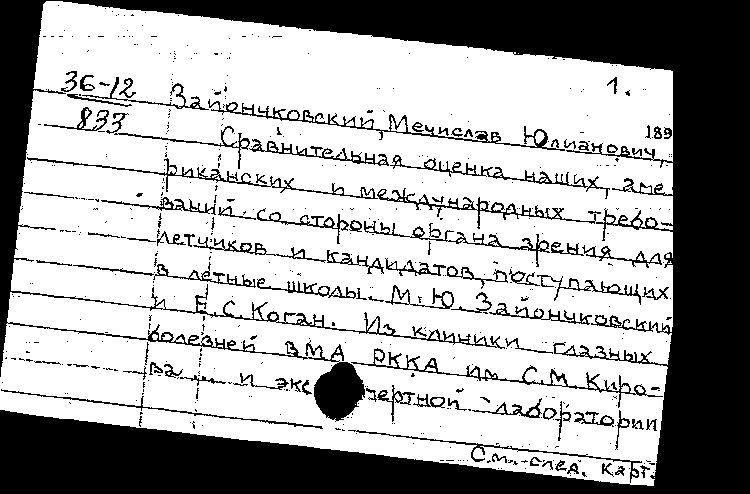 1.
36-12
833
Зайончковский, Мечислав Юлианович,
189
Сравнительная оценка наших, аме
риканских и международных требо-
ваний со стороны органа зрения для
летчиков и кандидатов, поступающих
в летные школы. М.Ю. Зайончковский
и Е.С. Коган. Из клиники глазных
болезней ВМА РККА им С.М. Киро-
ва ... и экс пертной лаборатории
См. след. карт.